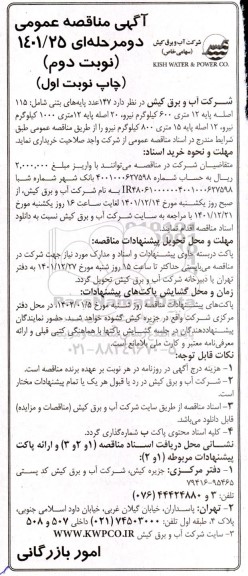 آگهی مناقصه عمومی
دومرحله‌ای ۱۴۰۱/۲۵
(نوبت دوم)
(چاپ نوبت اول)
شرکت آب و برق کیش
(سهامی خاص)
KISH WATER & POWER CO.
شرکت آب و برق کیش در نظر دارد ۱۴۷عدد پایه‌های بتنی شامل: ۱۱۵
اصله پایه ۱۲ متری ۶۰۰ کیلوگرم نیرو، ۲۰ اصله پایه ۱۲متری ۱۰۰۰ کیلوگرم
نیرو، ۱۲ اصله پایه ۱۵ متری ۸۰۰ کیلوگرم نیرو را از طریق مناقصه عمومی طبق
شرایط مندرج در اسناد مناقصه عمومی از شرکت واجد صلاحیت خریداری نماید.
مهلت و نحوه خرید اسناد:
متقاضیان شرکت در مناقصه می‌توانند با واریز مبلغ ۲,۰۰۰,۰۰۰
ریال به حساب شماره ۴۰۰۱۰۰۰۶۲۷۵۹۸ بانک شهر شماره شبا
به نام شرکت آب و برق کیش، از
صبح روز یکشنبه مورخ ۱۴۰۱/۱۲/۱۴ لغایت ساعت ۱۶ روز یکشنبه مورخ
۱۴۰۱/۱۲/۲۱ با مراجعه به سایت شرکت آب و برق کیش نسبت به دانلود
اسناد مناقصه اقدام نمایند.
مهلت و محل تحویل پیشنهادات مناقصه:
پاکت دربسته حاوی پیشنهادات و اسناد و مدارک مورد نیاز جهت شرکت در
مناقصه می‌بایستی حداکثر تا ساعت ۱۵ روز شنبه مورخ ۱۴۰۱/۱۲/۲۷ به دفتر
تهران یا دبیرخانه شرکت آب و برق کیش تحویل گردد.
زمان و محل گشایش پاکت‌های پیشنهادات:
پاکت‌های پیشنهادات مناقصه روز شنبه مورخ ۱۴۰۲/۰۱/۵ در محل دفتر
مرکزی شرکت واقع در جزیره کیش گشوده خواهد شد. حضور نمایندگان
پیشنهاددهندگان در جلسه گشایش پاکتها با هماهنگی کتبی قبلی و ارائه
معرفی‌نامه معتبر و کارت ملی بلامانع است.
نکات قابل توجه:
۱- هزینه درج آگهی در روزنامه در هر نوبت بر عهده برنده مناقصه است.
۲- شرکت آب و برق کیش در رد یا قبول هر یک یا تمام پیشنهادات مختار
است.
۳- اسناد مناقصه از طریق سایت شرکت آب و برق کیش (مناقصات و مزایده)
قابل دانلود می‌باشد.
۴- کلیه اسناد محتوی پاکت ب شماره‌گذاری گردد.
نشانی محل دریافت اسناد مناقصه (۱ و ۲ و ۳) و ارائه پاکت
پیشنهادات مربوطه (۱ و ۲):
۱- دفتر مرکزی: جزیره کیش، شرکت آب و برق کیش کد پستی
۷۹۴۱۶-۹۵۴۶۵
تلفن: ۳ و ۴۴۴۲۴۸۸۰ (۰۷۶)
۲- تهران: پاسداران، خیابان گیلان غربی، خیابان داود اسلامی جنوبی،
پلاک ۴، طبقه اول تلفن: ۷۴۵۰۳۰۰۰ (۰۲۱) داخلی ۵۰۷ و ۵۰۸
۳- سایت شرکت آب و برق کیش WWW.KWPCO.IR
امور بازرگانی